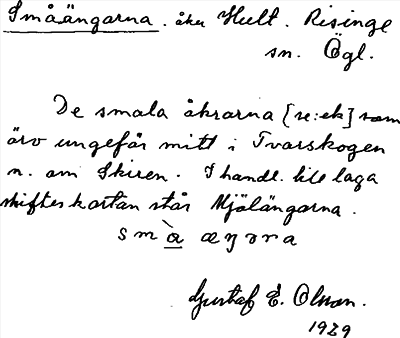 Småängarna. åker Hult. Risinge
sn. Ögl.
De smala åkrarna [se: ek] som
äro ungefär mitt i Tvarskogen
n. om Skiren. I handl. till laga
skifteskartan står Mjölängarna.
smàæŋɔrna
Gustaf E. Olsson.
1929